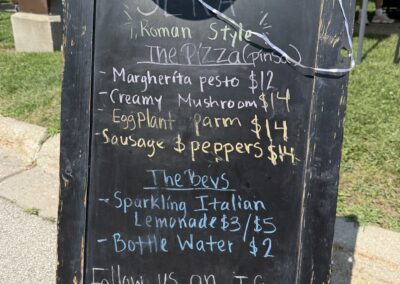 Roman Style
The Pizza (pinsa)
- Margherita pesto $12
- Creamy Mushroom $14
- Eggplant parm $14
- Sausage $ peppers $14
The Bevs
- Sparkling Italian
Lemonade $3/$5
- Bottle Water $2
Follow us on I.G